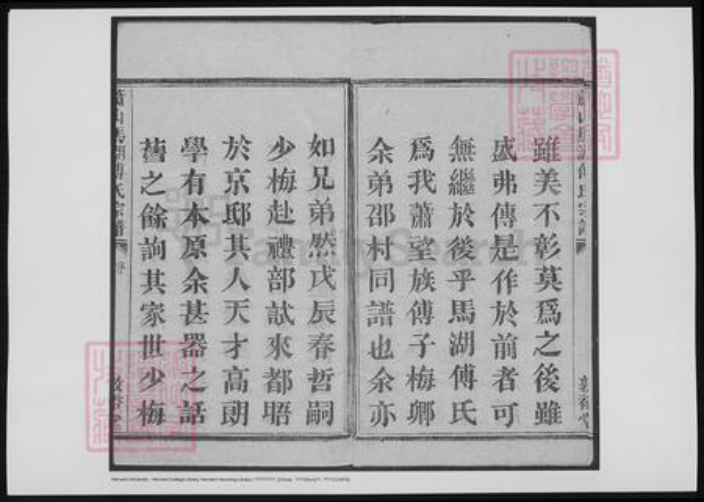 雖美不彰莫爲之後雖
盛弗傳是作於前者可
無繼於後乎馬湖傅氏
爲我蕭望族傅子梅卿
余弟邵村同譜也余亦
如兄弟然戊辰春哲嗣
少梅赴禮部試來都晤
於京邸其人天才高朗
學有本原余甚器之話
舊之餘詢其家世少梅
蕭山馬湖傅氏宗譜
序
FamilySearch